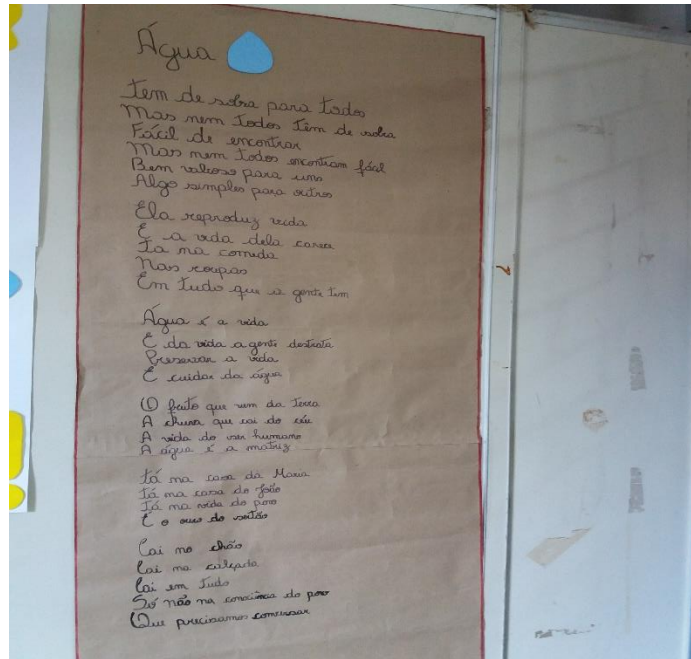 Água
Tem de sobra para todos
Mas nem todos têm de sobra
Fácil de encontrar
Mas nem todos encontram fácil
Bem valioso para uns
Algo simples para outros
Ela reproduz vida
E a vida dela carece
Tá na comida
Nas roupas
Em tudo que a gente tem
Água é a vida
E da vida a gente destrata
Preservar a vida
É cuidar da água
O fruto que vem da terra
A chuva que cai do céu
A vida do ser humano
A água é a matriz
Tá na casa da Maria
Tá na casa do João
Tá na vida do povo
É o ouro do sertão
Cai no chão
Cai na calçada
Cai em tudo
Só não na consciência do povo
Que precisamos conversar